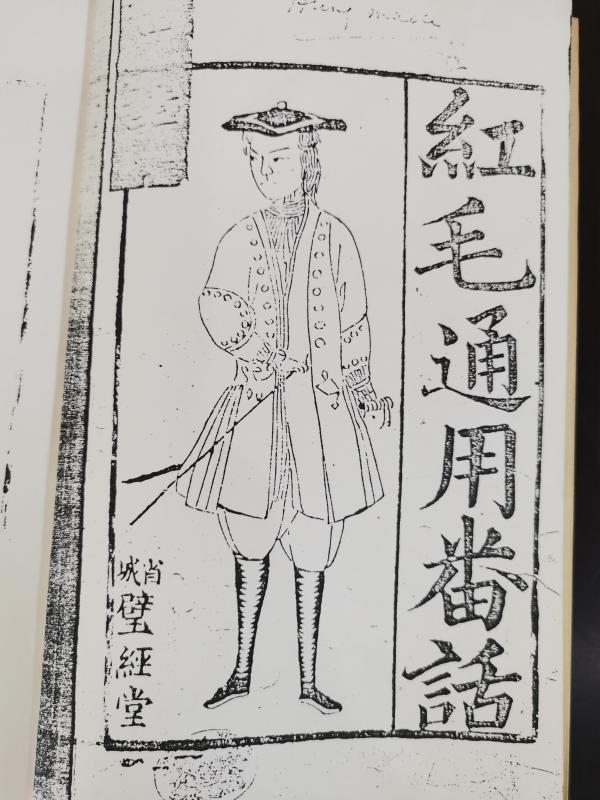 Hung
紅毛通用番話
省城
璧經堂